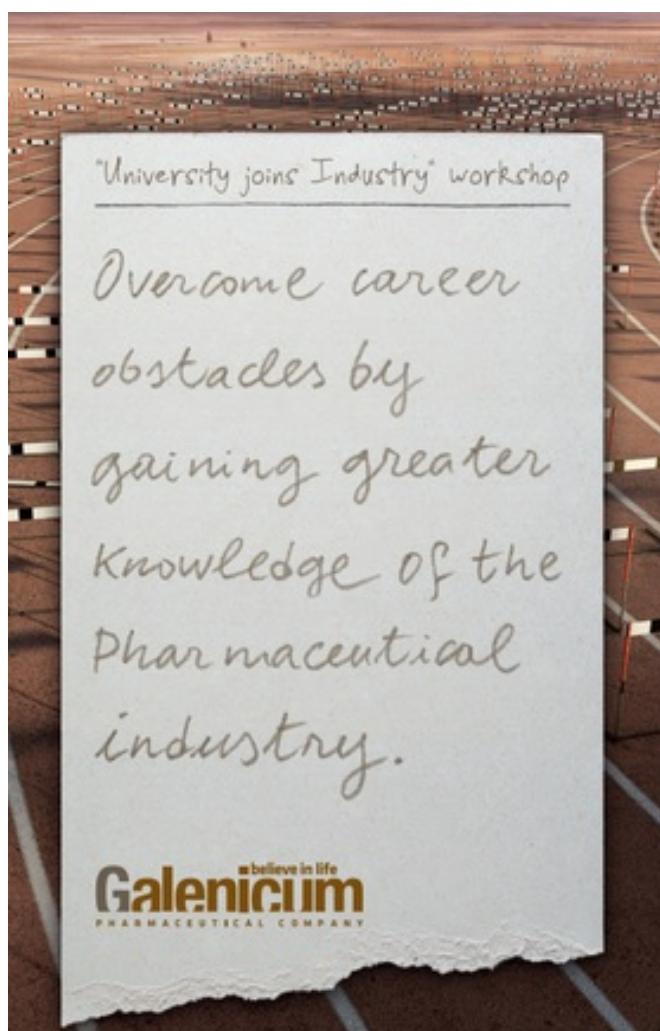 "University joins Industry" workshop
Overcome career
obstacles by
gaining greater
Knowledge of the
Pharmaceutical
industry.
believe in life
Galenicum
PHARMACEUTICAL COMPANY